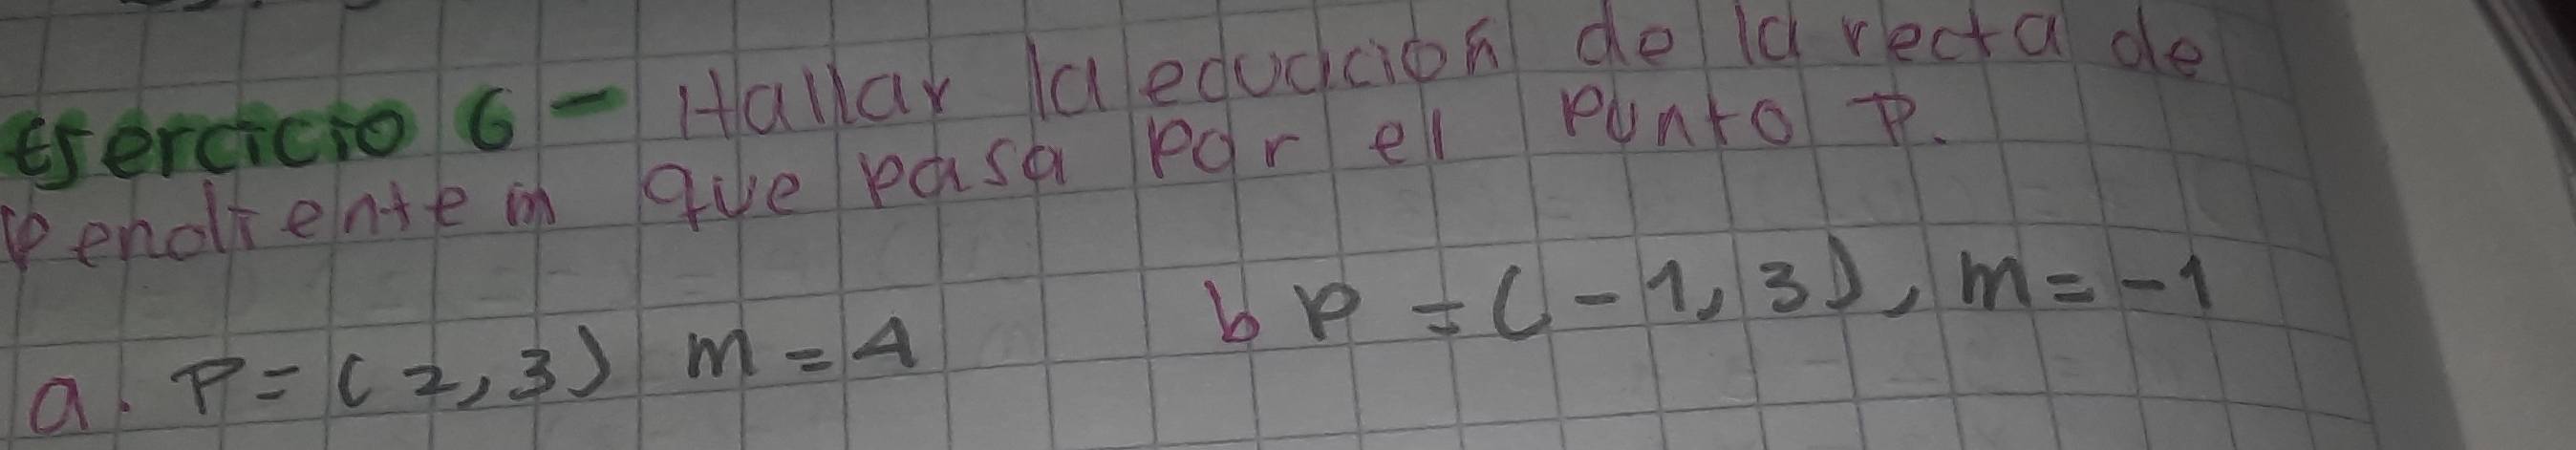 Ejercicio 6 - Hallar la ecuación de la recta de
pendiente m que pasa por el punto P.
a. P = (2,3) m = 4
b P = (-1,3), m = -1